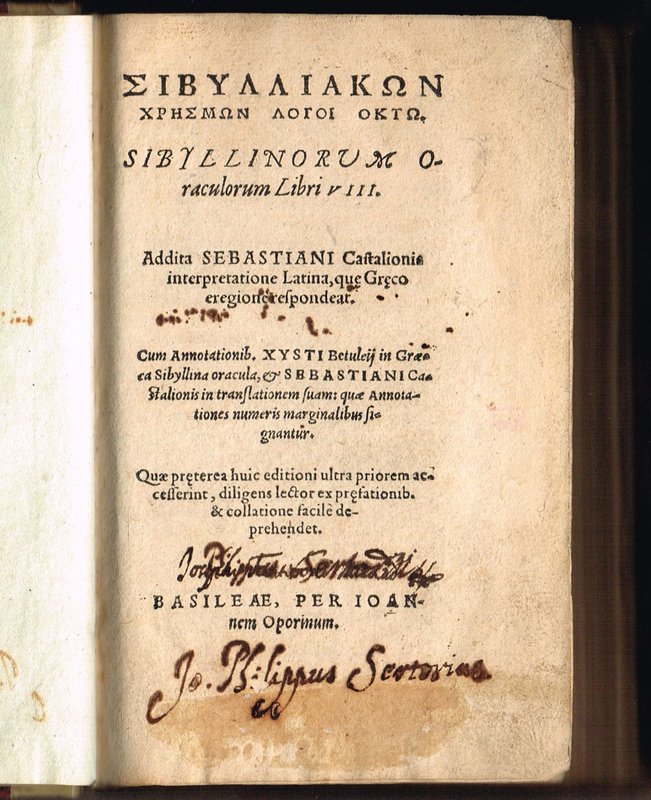 ΣΙΒΥΛΛΙΑΚΩΝ
ΧΡΗΣΜΩΝ ΛΟΓΟΙ ΟΚΤΩ.
SIBYLLINORUM O-
raculorum Libri VIII.
Addita SEBASTIANI Castalionis
interpretatione Latina, quę Gręco
eregione respondeat.
Cum Annotationib. XYSTI Betuleij in Græ-
ca Sibyllina oracula, & SEBASTIANI Ca-
stalionis in translationem suam: quæ Annota-
tiones numeris marginalibus si-
gnantur.
Quæ pręterea huic editioni ultra priorem ac-
cesserint, diligens lector ex pręfationib.
& collatione facilè de-
prehendet.
BASILEAE, PER IOAN-
nem Oporinum.
Jo. Philippus Sertorius